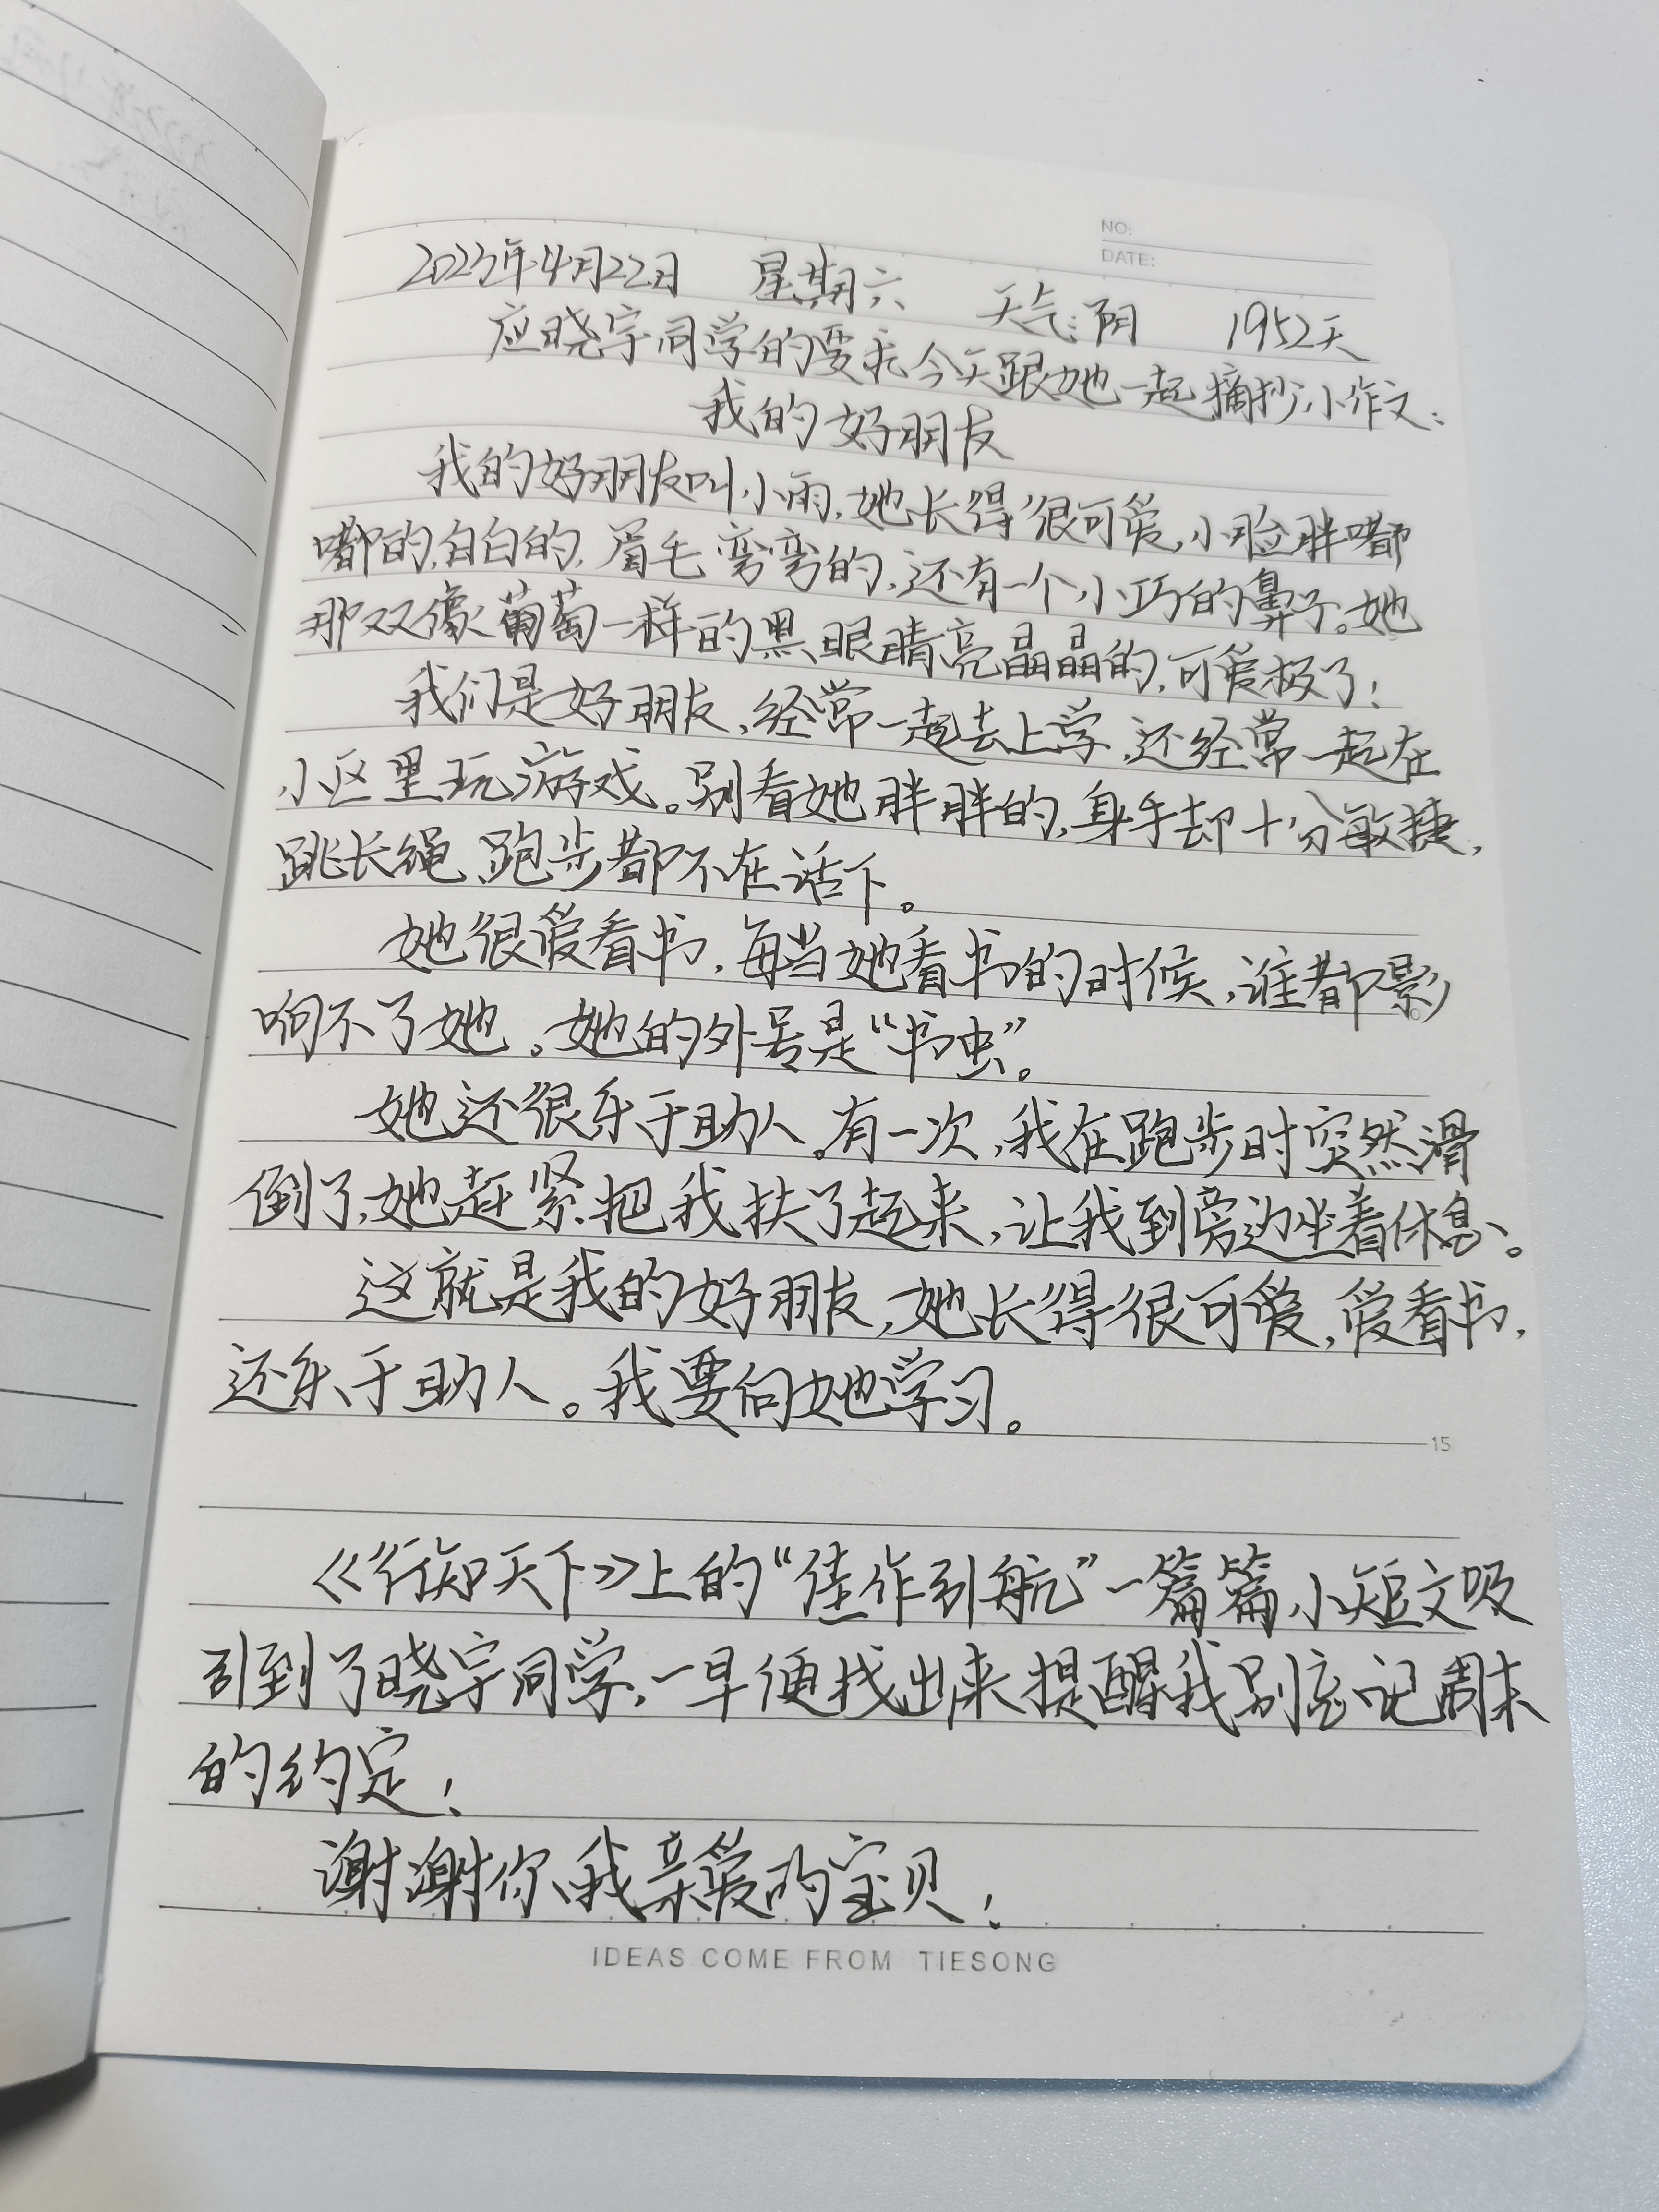 NO:
DATE:
2023年4月22日 星期六 天气:阴 1952天
应晓宇同学的要求今天跟她一起摘抄小作文:
我的好朋友
我的好朋友叫小雨,她长得很可爱,小脸胖嘟
嘟的,白白的,眉毛弯弯的,还有一个小巧的鼻子。她
那双像葡萄一样的黑眼睛亮晶晶的,可爱极了!
我们是好朋友,经常一起去上学,还经常一起在
小区里玩游戏。别看她胖胖的,身手却十分敏捷,
跳长绳、跑步都不在话下。
她很爱看书,每当她看书的时候,谁都影
响不了她。她的外号是“书虫”。
她还很乐于助人。有一次,我在跑步时突然滑
倒了,她赶紧把我扶了起来,让我到旁边坐着休息。
这就是我的好朋友,她长得很可爱,爱看书,
还乐于助人。我要向她学习。
15
《行知天下》上的“佳作引航”一篇篇小短文吸
引到了晓宇同学,一早便找出来提醒我别忘记周末
的约定!
谢谢你,我亲爱的宝贝!
IDEAS COME FROM TIESONG